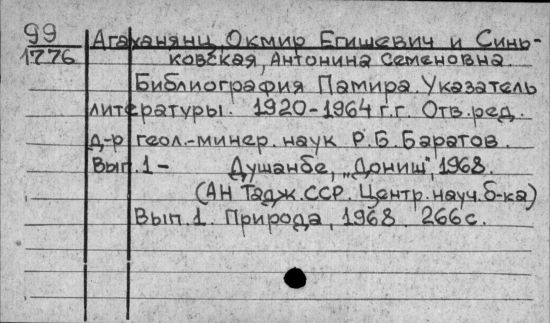 99
1776
Агаханянц, Окмир Егишевич и Синь-
ковская, Антонина Семеновна.
Библиография Памира. Указатель
литературы. 1920-1964 г.г. Отв. ред.
д-р геол.-минер. наук Р.Б. Баратов.
Вып. 1- Душанбе, „Дониш", 1968.
(АН Тадж.ССР. Центр. науч. б-ка)
Вып. 1. Природа, 1968. 266 с.